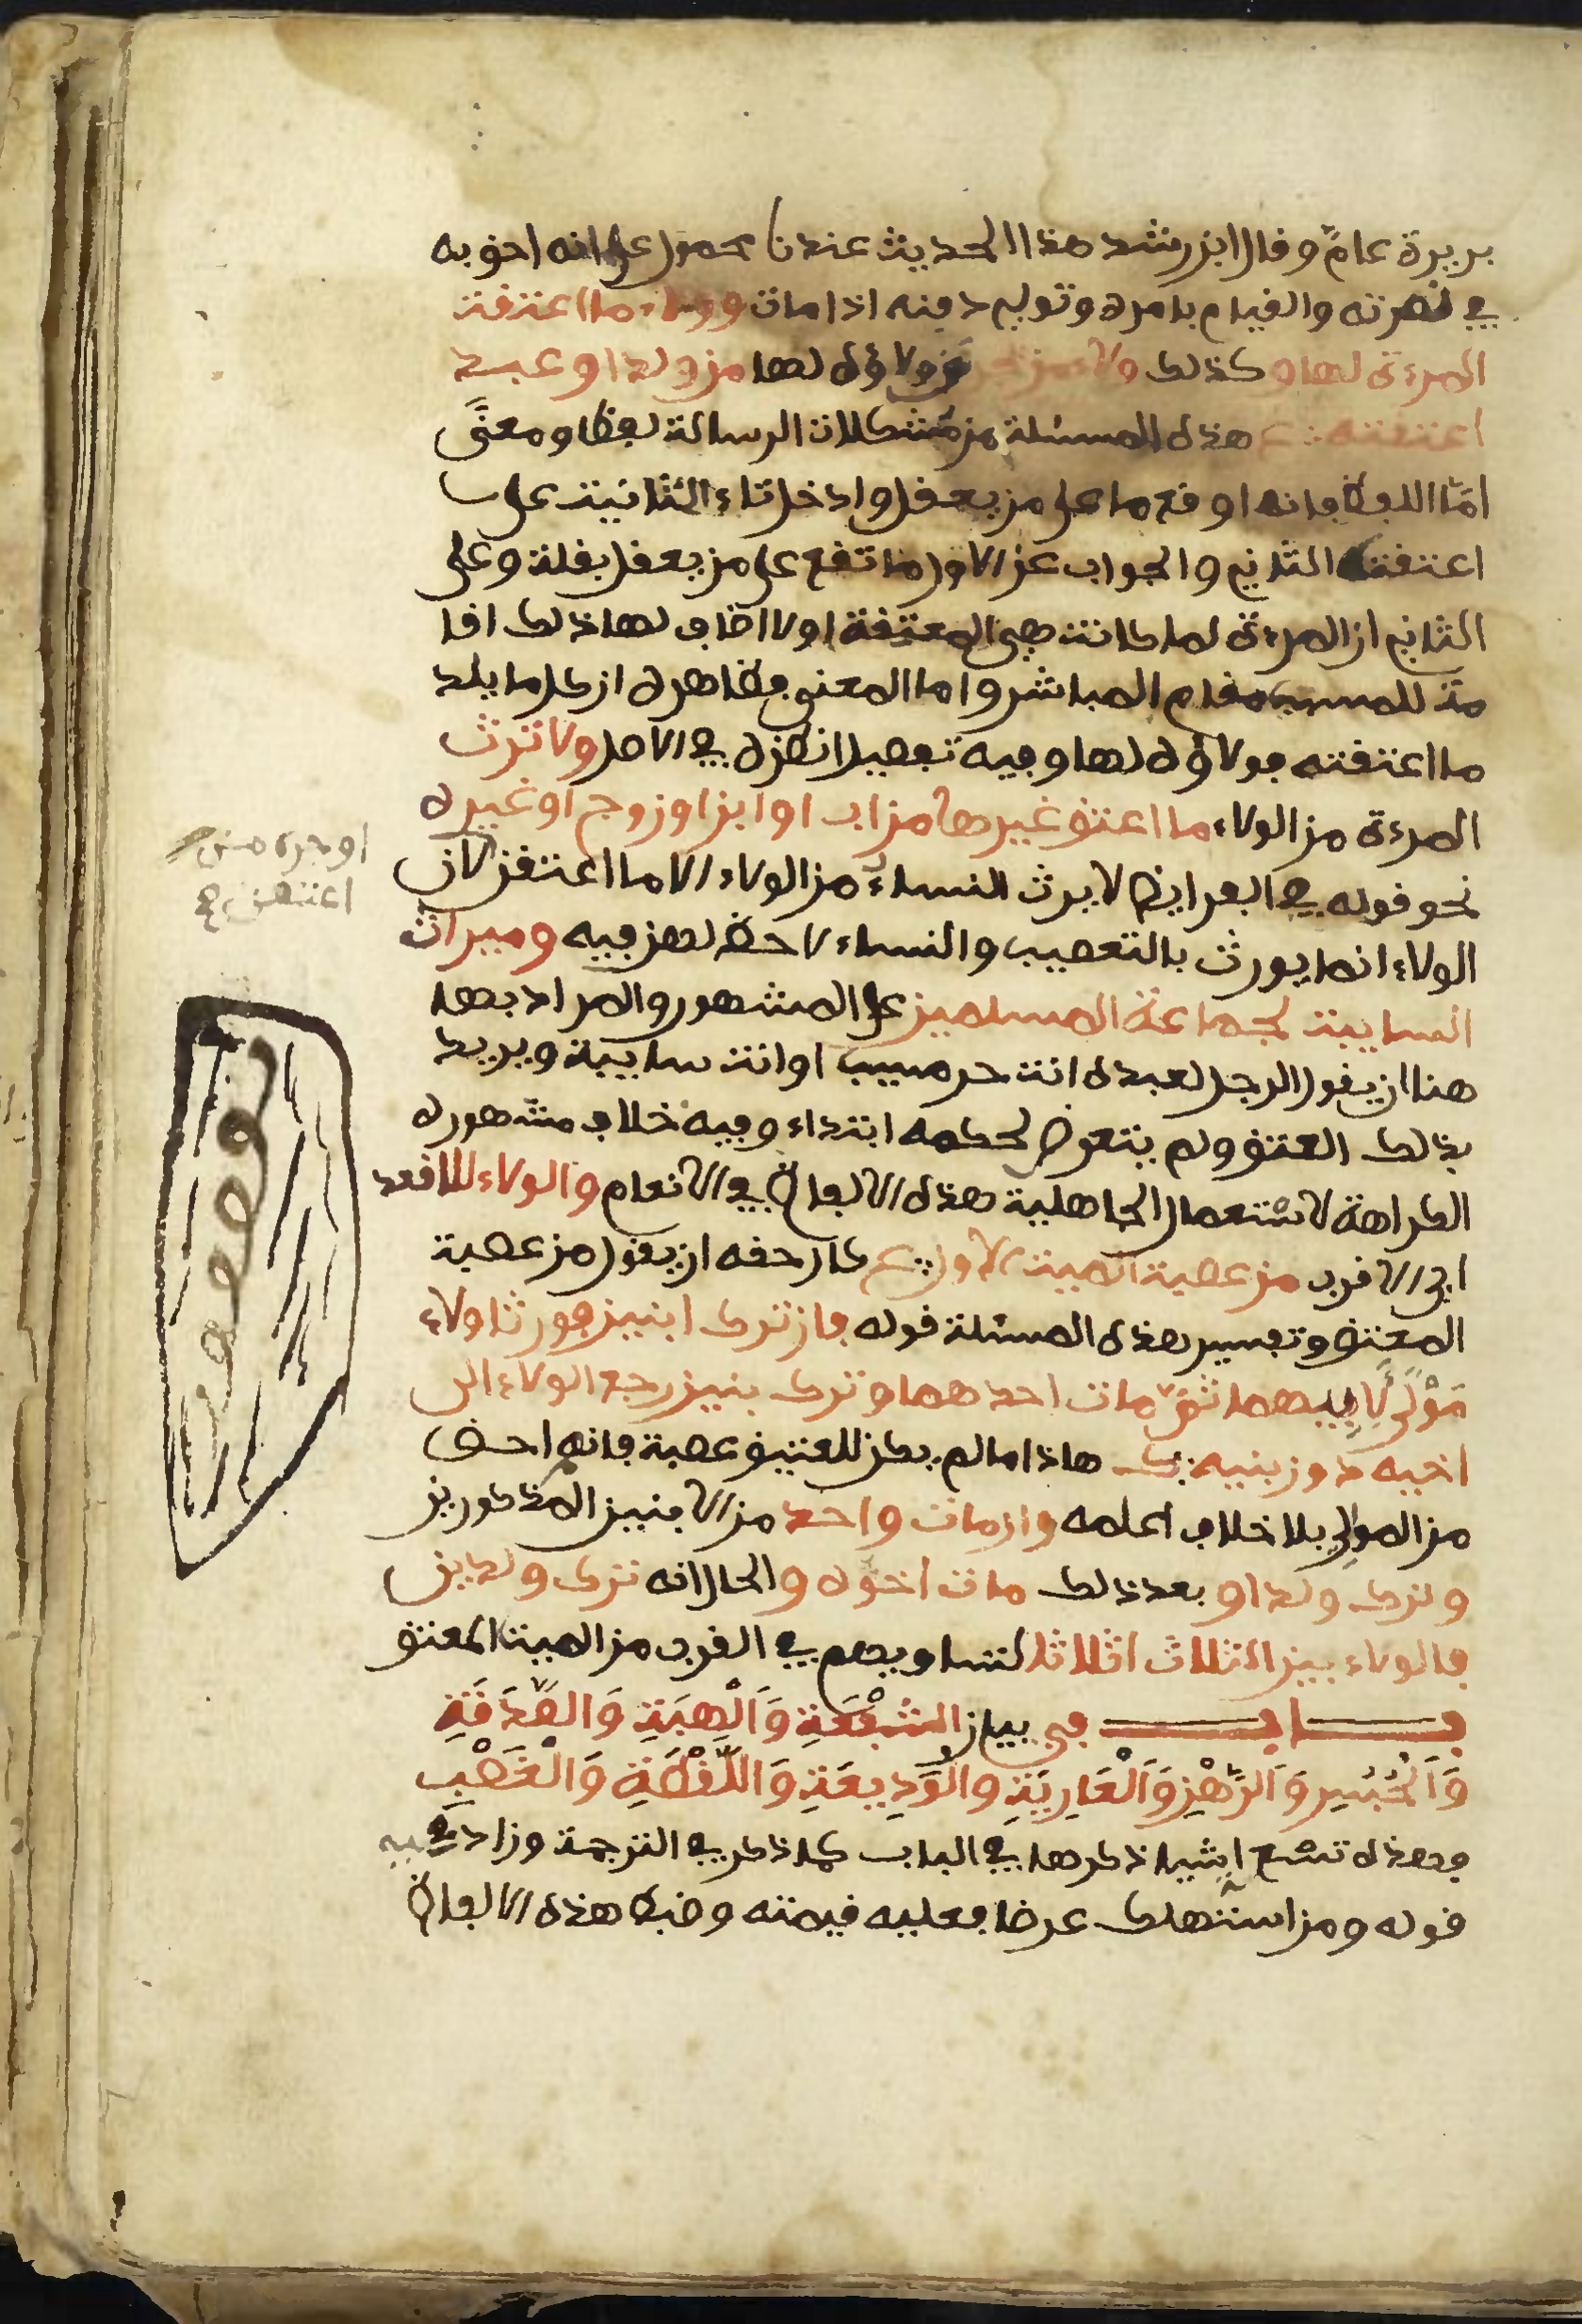 بريرة عامٌ وقال ابن رشد هذا الحديث عندنا محمول على انه احق به
في نصرته والقيام بامره وتولي دفنه اذا مات وولاء ما اعتقت
المرءة لها وكذلك ولاء من يجر من ولاؤه لها من ولد او عبد
اعتقته هذه المسئلة من مشكلات الرسالة لفظا ومعنًى
امّا اللفظ فانه اوقع ما على من يعقل وادخل تاء التانيث على
اعتقته الثاني والجواب عن الاول ما تقع على من يعقل بقلة وعلى
الثاني ان المرءة لما كانت هي المعتقة اولا اضاف لها ذلك اقا
مة للمسبب مقام المباشر واما المعنى فظاهره ان كل ما يلد
ما اعتقته فولاؤه لها وفيه تفصيل انظره في الاصل ولا ترث
المرءة من الولاء ما اعتق غيرها من اب او ابن او زوج او غيره
نحو قوله في الفرايض لا يرث النساء من الولاء الا ما اعتقن لان
الولاء انما يورث بالتعصيب والنساء لا حظ لهن فيه وميراث
السايبة لجماعة المسلمين على المشهور والمراد بها
هنا ان يقول الرجل لعبده انت حر مسيب او انت سايبة ويريد
بذلك العتق ولم يتعرض لحكمه ابتداء وفيه خلاف مشهوره
الكراهة لاستعمال الجاهلية هذه الالفاظ في الانعام والولاء للاقعد
اي الاقرب من عصبة الميت الاول كان حقه ان يقول من عصبة
المعتق وتفسير هذه المسئلة قوله فان ترك ابنين فورثا ولاء
مَوْلًى لِابيهما ثمّ مات احدهما وترك بنين رجع الولاء الى
اخيه دون بنيه هاذا ما لم يكن للعتيق عصبة فانه احق
من الموالي بلا خلاف اعلمه وان مات واحد من الابنين المذكورين
وترك ولدا وبعد ذلك مات اخوه والحال انه ترك ولدين
فالولاء بين الثلاث اثلاثا لتساويهم في القرب من الميت المعتق
بــاب في بيان الشُّفْعَةِ وَالْهِبَةِ وَالصَّدَقَةِ
وَالْحُبُسِ وَالرَّهْنِ وَالْعَارِيَةِ والْوَدِيعَةِ وَاللُّقْطَةِ وَالْغَصْبِ
فهذه تسع اشيا ذكرها في الباب كما ذكر في الترجمة وزاد فيه
قوله ومن استهلك عرضا فعليه قيمته وضبط هذه الالفاظ
او جره من
اعتقن